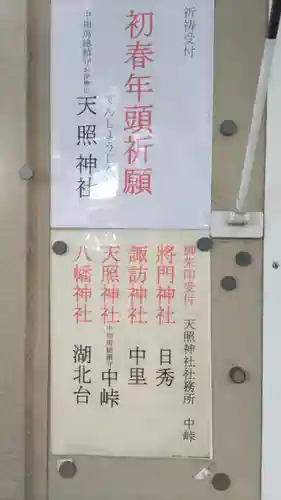 祈祷受付
初春年頭祈願
てんしょうじんじゃ
天照神社
御朱印受付 天照神社社務所 中峠
將門神社 日秀
諏訪神社 中里
天照神社 中峠
八幡神社 湖北台